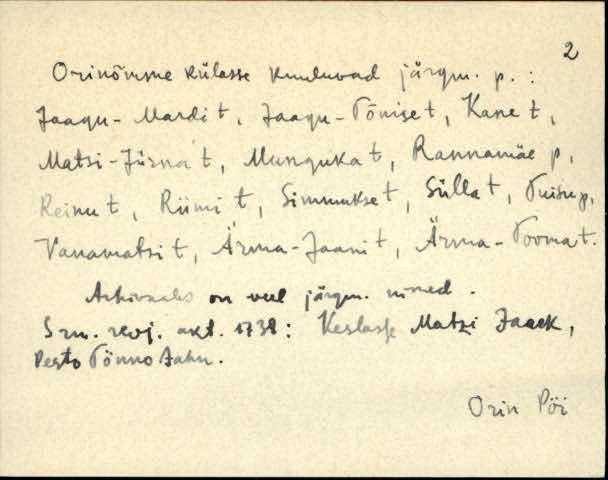 2
Orinõmme külasse kuuluvad järgm. p. :
Jaagu-Mardi t, Jaagu-Tõnise t, Kane t,
Matsi-Jüsna t, Munguka t, Rannamäe p,
Reinu t, Riimi t, Simmukse t, Sülla t, Tuisu p,
Vanamatsi t, Ärma-Jaani t, Ärma-Tooma t.
Arhivaals on veel järgm. nimed.
S rm. revj. akt. 1738: Keslasse Matzi Jaack,
Pesto Tönno Jahn.
Orin Pöi